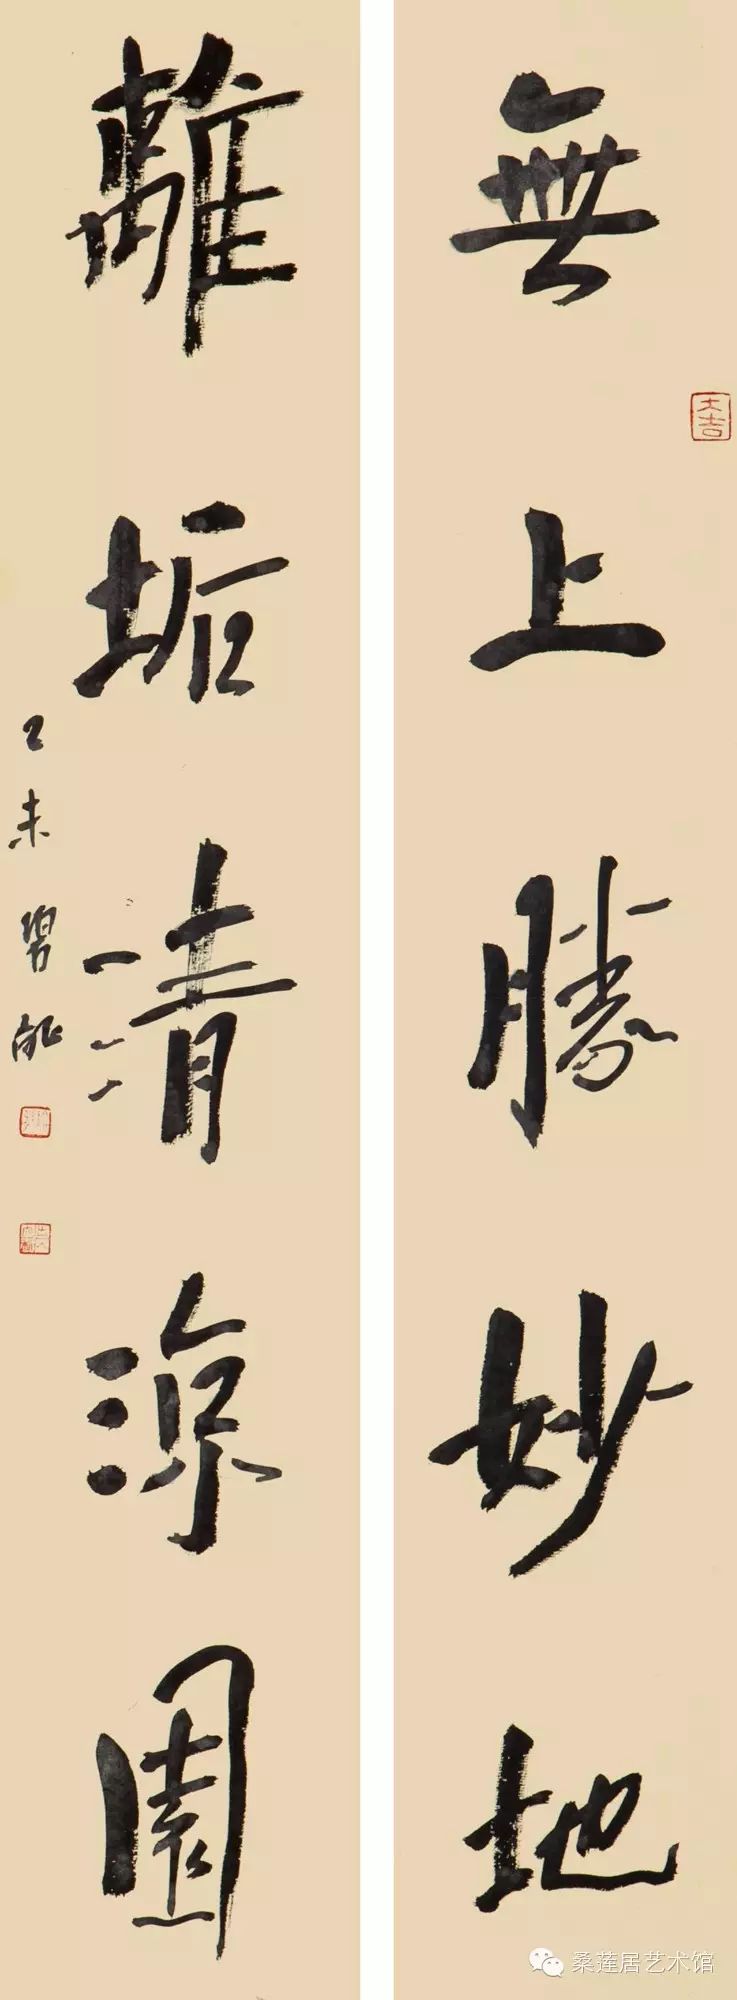 無上勝妙地
大吉
離垢清涼園
乙未
桑莲居艺术馆